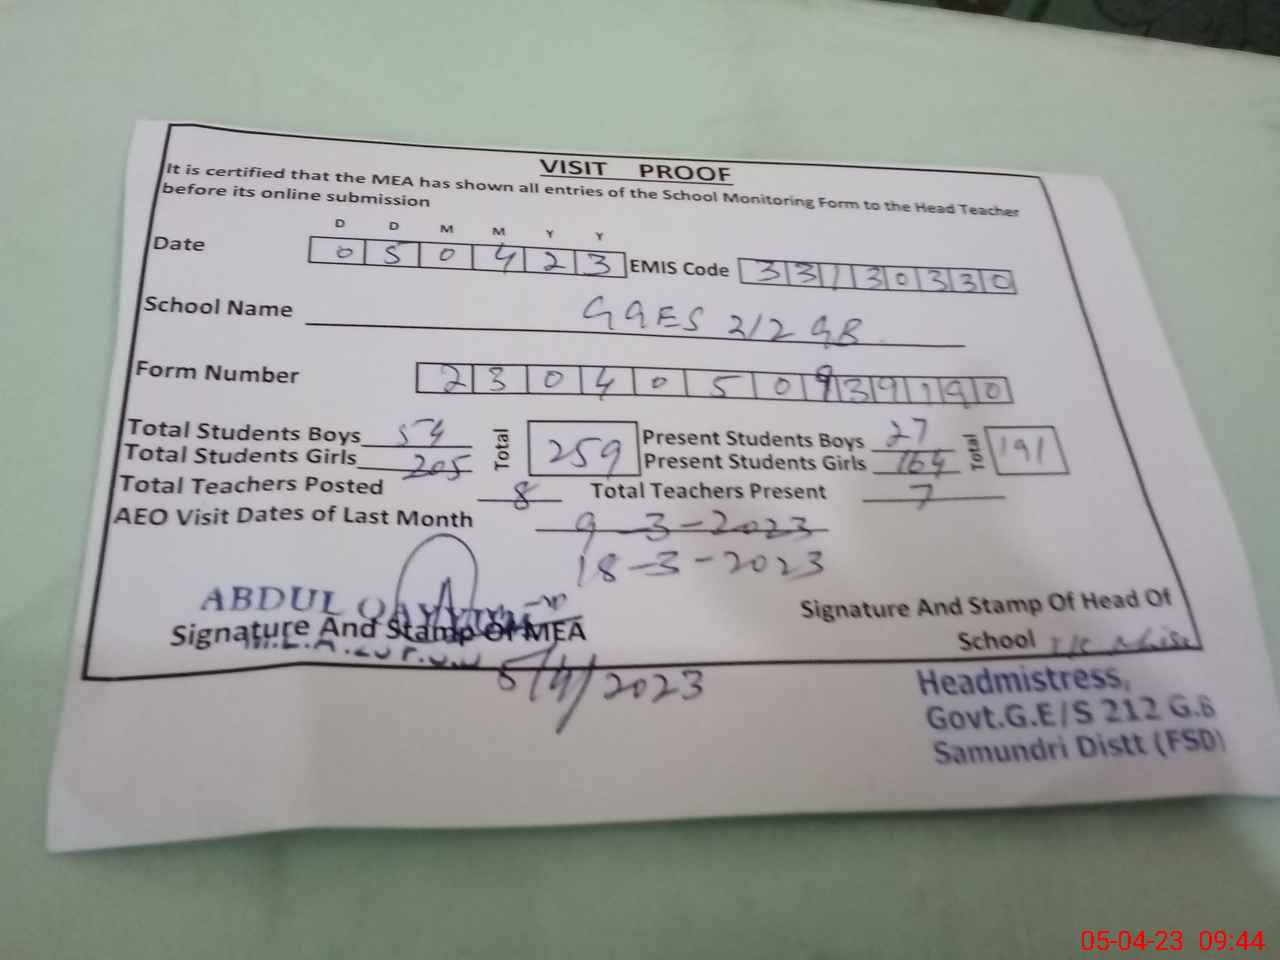 VISIT PROOF
It is certified that the MEA has shown all entries of the School Monitoring Form to the Head Teacher
before its online submission
D D M M Y Y
Date 0 5 0 4 2 3 EMIS Code 3 3 1 3 0 3 3 0
School Name GGES 212 GB
Form Number 2 3 0 4 0 5 0 9 3 9 1 9 0
Total Students Boys 54 Total 259 Present Students Boys 27 Total 191
Total Students Girls 205 Present Students Girls 164
Total Teachers Posted 8 Total Teachers Present 7
AEO Visit Dates of Last Month 9-3-2023
18-3-2023
ABDUL QAYYUM
Signature And Stamp Of MEA
5/4/2023
Signature And Stamp Of Head Of
School I/C
Headmistress,
Govt.G.E/S 212 G.B
Samundri Distt (FSD)
05-04-23 09:44